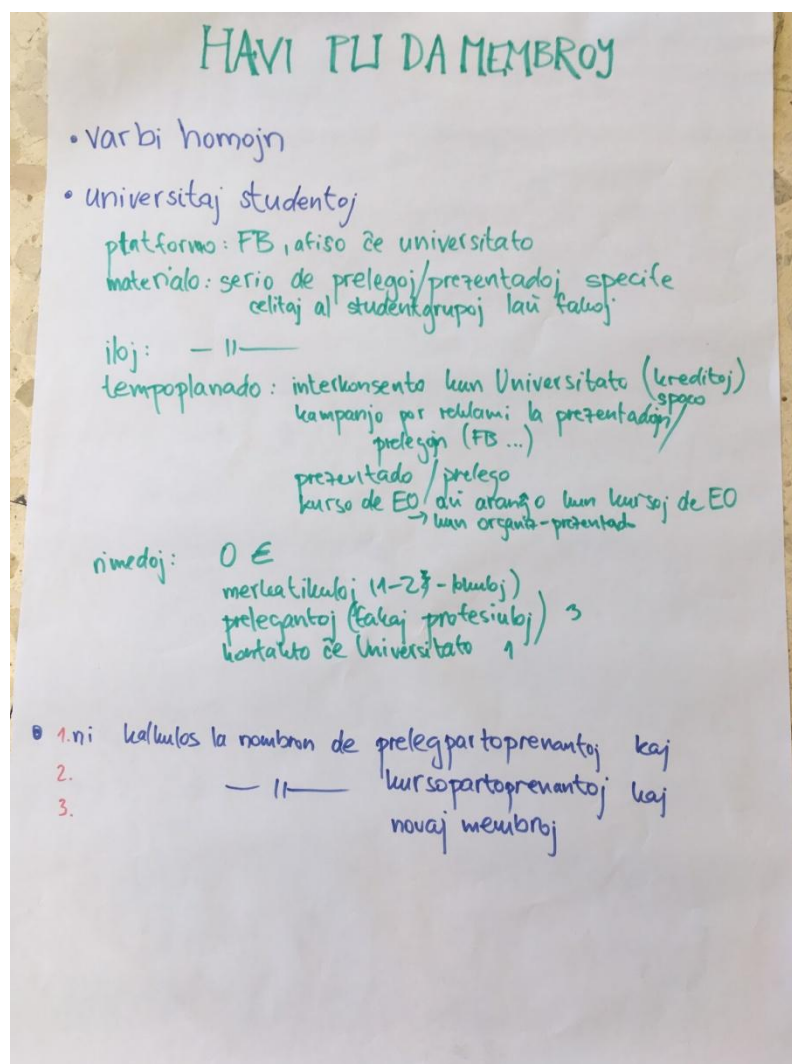 HAVI PLI DA MEMBROJ
• varbi homojn
• universitaj studentoj
platformo: FB, afiso ĉe universitato
materialo: serio de prelegoj/prezentadoj specife
celitaj al studentgrupoj laŭ fakoj
iloj: — 11 —
tempoplanado: interkonsento kun Universitato (kreditoj)
spaco
kampanjo por reklami la prezentadojn/
prelegojn (FB ...)
prezentado / prelego
kurso de EO/aŭ aranĝo kun kursoj de EO
→ kun organiz-prezentado
rimedoj: 0 €
merkatikuloj (1-2
prelegantoj (fakaj profesiuloj) 3
kontakto ĉe Universitato 1
• 1. ni kalkulos la nombron de prelegpartoprenantoj kaj
2. — 11 — kursopartoprenantoj kaj
3. novaj membroj